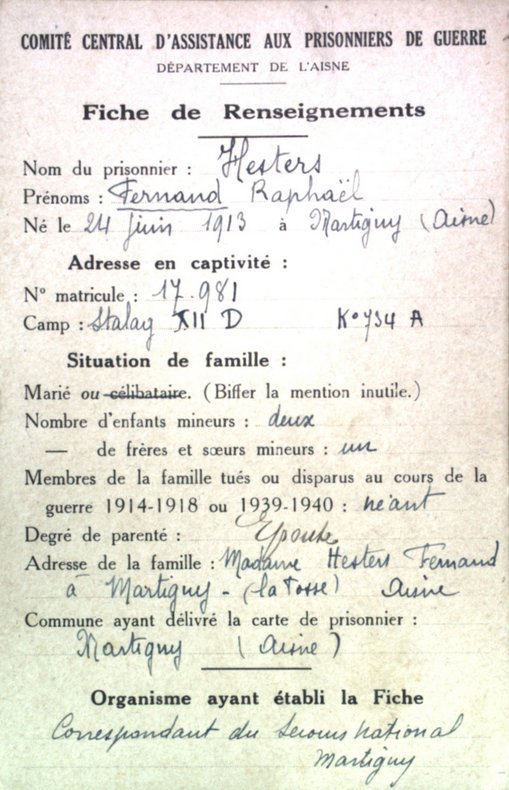 COMITÉ CENTRAL D'ASSISTANCE AUX PRISONNIERS DE GUERRE
DÉPARTEMENT DE L'AISNE
Fiche de Renseignements
Nom du prisonnier : Hesters
Prénoms : Fernand Raphaël
Né le 24 juin 1913 à Martigny (Aisne)
Adresse en captivité :
N° matricule : 17.981
Camp : Stalag XII D K° 734 A
Situation de famille :
Marié ou célibataire. (Biffer la mention inutile.)
Nombre d'enfants mineurs : deux
— de frères et sœurs mineurs : un
Membres de la famille tués ou disparus au cours de la
guerre 1914-1918 ou 1939-1940 : néant
Degré de parenté : Epouse
Adresse de la famille : Madame Hesters Fernand
à Martigny - (la Fosse) Aisne
Commune ayant délivré la carte de prisonnier :
Martigny (Aisne)
Organisme ayant établi la Fiche
Correspondant du Secours National
Martigny